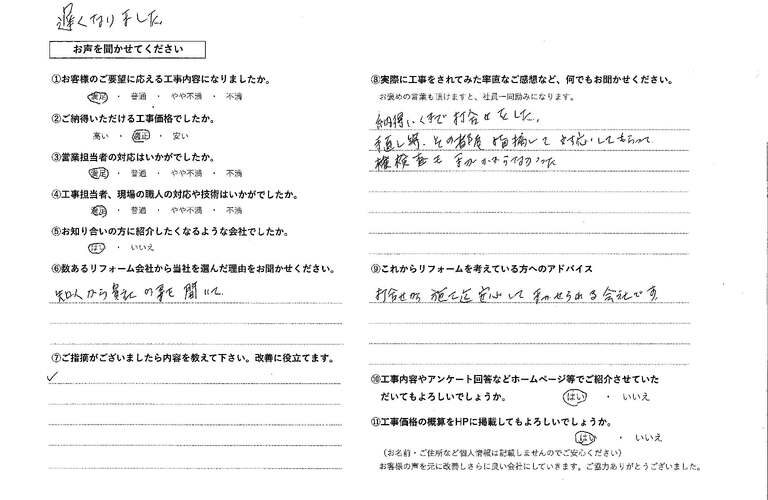 遅くなりました
お声を聞かせてください
①お客様のご要望に応える工事内容になりましたか。
満足 ・ 普通 ・ やや不満 ・ 不満
②ご納得いただける工事価格でしたか。
高い ・ 適正 ・ 安い
③営業担当者の対応はいかがでしたか。
満足 ・ 普通 ・ やや不満 ・ 不満
④工事担当者、現場の職人の対応や技術はいかがでしたか。
満足 ・ 普通 ・ やや不満 ・ 不満
⑤お知り合いの方に紹介したくなるような会社でしたか。
はい ・ いいえ
⑥数あるリフォーム会社から当社を選んだ理由をお聞かせください。
知人から貴社の事を聞いて
⑦ご指摘がございましたら内容を教えて下さい。改善に役立てます。
⑧実際に工事をされてみた率直なご感想など、何でもお聞かせください。
お褒めの言葉も頂けますと、社員一同励みになります。
納得いくまで打合せをした。
手直し等、その都度指摘して対応してもらって
検査も手がかからなかった
⑨これからリフォームを考えている方へのアドバイス
打合せから施工迄安心してまかせられる会社です
⑩工事内容やアンケート回答などホームページ等でご紹介させていた
だいてもよろしいでしょうか。 はい ・ いいえ
⑪工事価格の概算をHPに掲載してもよろしいでしょうか。
はい ・ いいえ
（お名前・ご住所など個人情報は記載しませんのでご安心ください）
お客様の声を元に改善しさらに良い会社にしていきます。ご協力ありがとうございました。